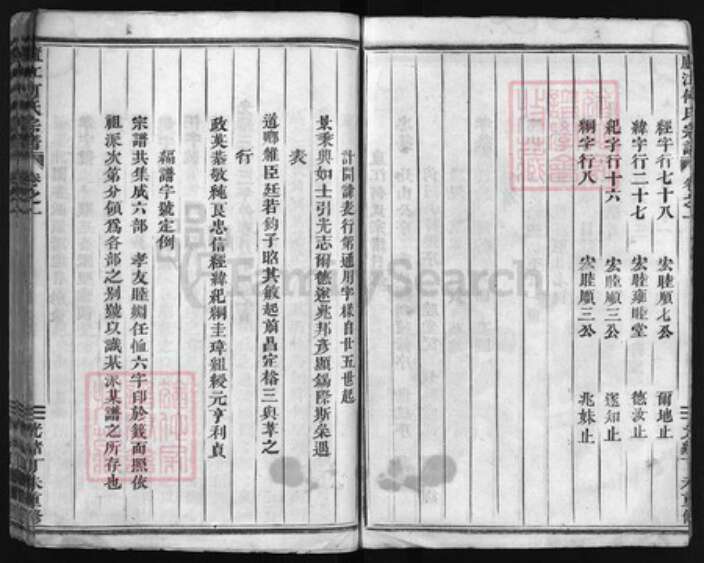 經字行七十八 宏睦順七公 爾地止
緯字行二十七 宏睦雍睦堂 德汝止
紀字行十六 宏睦順三公 遂知止
綱字行八 宏睦順三公 兆妹止
計開諱表行第通用字樣自廿五世起
景秉與如士引光志爾德遂兆邦彥顯錫際斯榮遇
表
道鄉維臣廷若鈞子昭其敏起前昌定裕三與萃之
行
政英恭敬純良忠信經緯紀綱圭璋組綬元亨利貞
編譜字號定例
宗譜共集成六部 孝友睦婣任恤六字印於籤面照依
祖派次第分領爲各部之別號以識某派某譜之所存也
FamilySearch